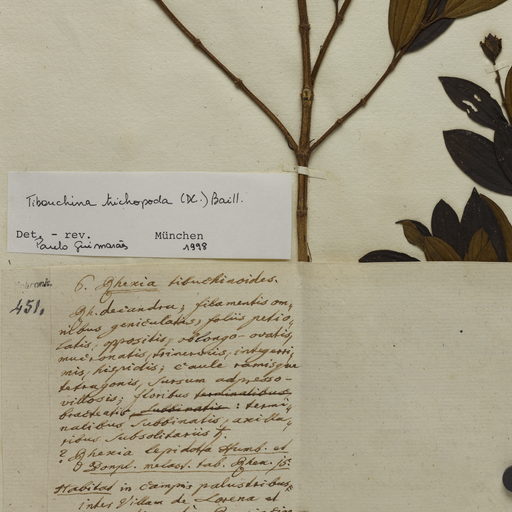 Tibouchina trichopoda (DC.) Baill.
Det. - rev. München
Paulo Guimarães 1998
451.
6. Rhexia tibuchinoides.
Rh. decandra; filamentis om,
nibus geniculatis; foliis petio,
latis, oppositis, oblongo-ovatis,
mucronatis, trinerviis, integerri,
mis, hispidis; caule ramisque
tetragonis, sursum adpresso-
villosis; floribus terminalibus
bracteatis subbinatis: termi,
nalibus subbinatis, axilla,
ribus subsolitariis ♄.
? Rhexia lepidota Humb. et
Bonpl. melast. tab. Rhex.
Habitat in campis palustribus
inter Villam de Lorena et